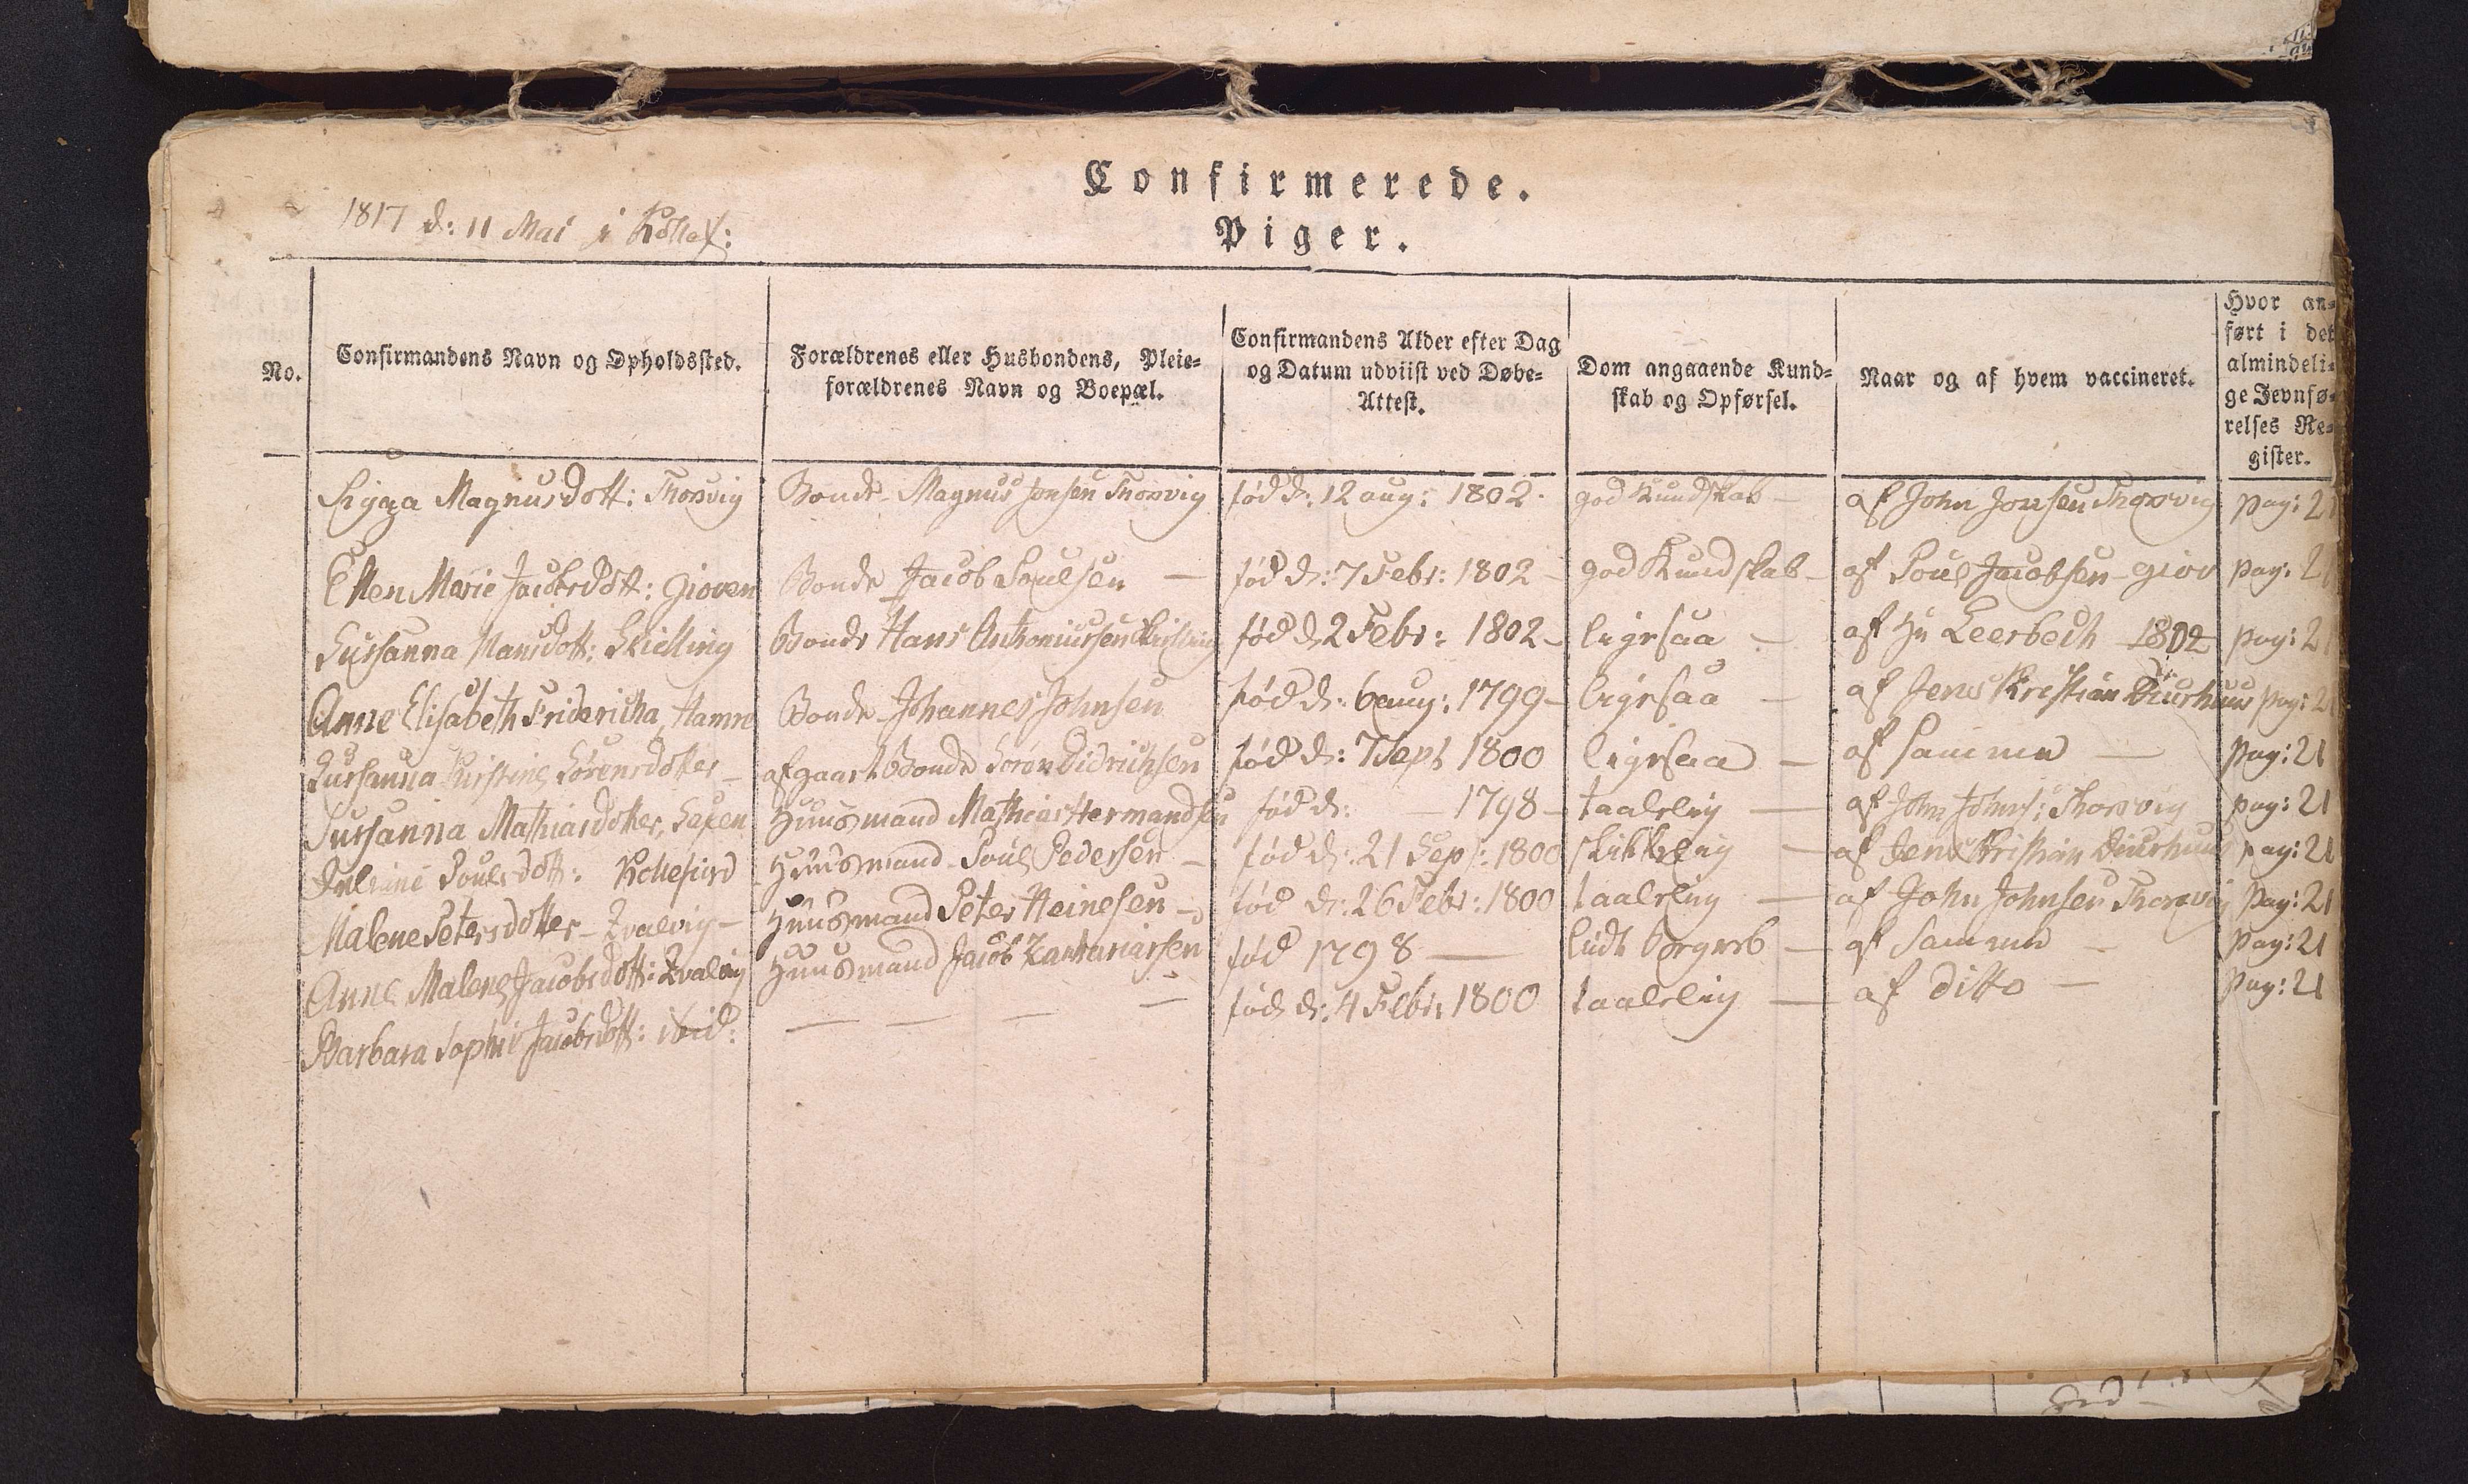 Confirmerede.
Piger.
1817 d: 11 Mai i Kollef:
No.
Confirmandens Navn og Opholdssted.
Forældrenes eller Husbondens, Pleie-
forældrenes Navn og Boepæl.
Confirmandens Alder efter Dag
og Datum udviist ved Døbe-
Attest.
Dom angaaende Kund-
skab og Opførsel.
Naar og af hvem vaccineret.
Hvor an-
ført i det
almindeli-
ge Jevnfø-
relses Re-
gister.
Sigga Magnusdott: Thorsvig Bonde Magnus Jonsen Thorsvig fød d: 12 aug: 1802. god Kundskab - af John Jonsen Thorsvig pag: 21
Ellen Marie Jacobsdott: Gioven Bonde Jacob Poulsen - fød d: 7 Febr: 1802 - god Kundskab - af Poul Jacobsen giov pag: 21
Sussanna Hansdott: Skielling Bonde Hans Anthoniussen Skielling fød d 2 Febr: 1802 - ligesaa - af Hr Leerbech 1802 pag: 21
Anne Elisabeth Fridericha Hamn Bonde Johannes Johnsen fød d: 6 aug: 1799 - ligesaa - af Jens Kristian Diurhuus pag: 21
Sussanna Kirstine Sørensdotter - afgaaet Bonde Søren Didrichsen fød d: 7 Sept 1800 ligesaa - af samme - pag: 21
Sussanna Mathiasdotter, Saxen Huusmand Mathias Hermandsen fød d: - 1798 - taalelig - af John Johns: Thorsvig pag: 21
Poulsdott: Kollefiord Huusmand Poul Pedersen - fød d: 21 Sept: 1800 skikkelig - af Jens Kristian Diurhuus pag: 21
Malene Petersdotter - Qvalvig - Huusmand Peter Heinesen - fød d: 26 Febr: 1800 taalelig - af John Johnsen Thorsvig pag: 21
Anne Malene Jacobsdott: Qvalvig Huusmand Jacob Zachariassen fød 1798 - lidt begreb - af Samme - pag: 21
Barbara Sophie Jacobsdott: ibid: - - - - fød d: 4 Febr: 1800 taalelig - af ditto - pag: 21